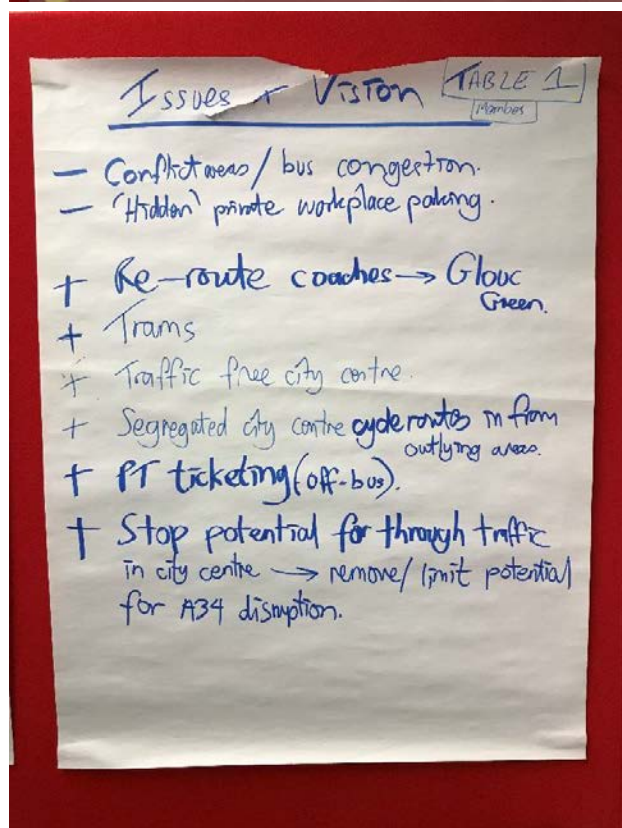 Issues + Vision
TABLE 1
Member
– Conflict areas / bus congestion.
– 'Hidden' private workplace parking.
+ Re-route coaches → Glouc
Green.
+ Trams
+ Traffic free city centre.
+ Segregated city centre cycle routes in from
outlying areas.
+ PT ticketing (off-bus).
+ Stop potential for through traffic
in city centre → remove / limit potential
for A34 disruption.